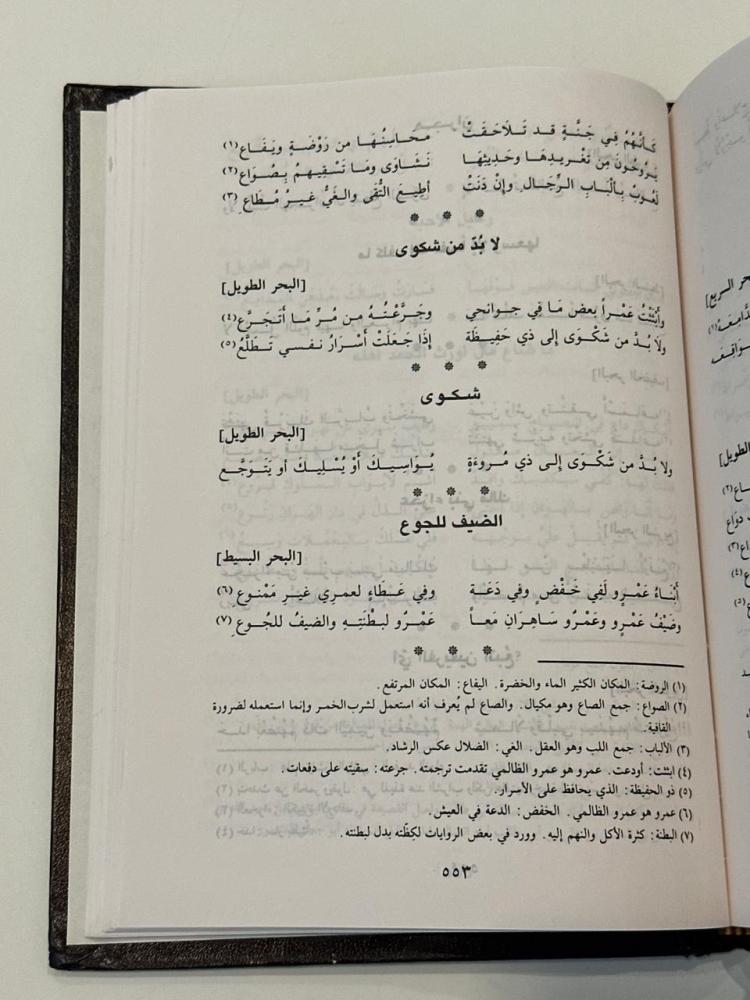 كَأَنَّهُمُ فِي جَنَّةٍ قد تَلاَحَقَتْ محَاسِنُهَا من رَوْضَةٍ ويَفَاعِ(١)
يَرُوحُونَ مِن تَغْرِيدِهَا وحَدِيثِهَا نَشَاوَى ومَا تَسْقِيهِمُ بِصُوَاعِ(٢)
لَعُوبٌ بِأَلْبَابِ الرِّجَالِ وإنْ دَنَتْ أُطِيعَ التُّقَى والغَيُّ غيرُ مُطَاعِ(٣)
لا بُدّ من شكوى
[البحر الطويل]
وأَبْثَثْتُ عَمْراً بعضَ مَا فِي جوانحي وجَرَّعْتُهُ من مُرِّ مَا أَتَجَرَّع(٤)
ولا بُدَّ من شَكْوَى إِلى ذي حَفِيظَة إِذَا جَعَلَتْ أَسْرَارُ نفسي تَطَلَّعُ(٥)
شكوى
[البحر الطويل]
ولا بدَّ من شَكْوَى إِلى ذي مُروءَةٍ يُوَاسِيكَ أَوْ يُسْلِيكَ أو يَتَوَجَّع
الضيف للجوع
[البحر البسيط]
أَبْنَاءُ عَمْرٍو لَفِي خَفْضٍ وفي دَعَة وفِي عَطَاءٍ لعمري غيرِ مَمْنوعِ(٦)
وضَيْفُ عَمْرٍو وعَمْرٌو سَاهِرَانِ مَعاً عَمْرٌو لبِطْنَتِهِ والضيفُ للجُوعِ(٧)
(١) الروضة: المكان الكثير الماء والخضرة. اليفاع: المكان المرتفع.
(٢) الصواع: جمع الصاع وهو مكيال. والصاع لم يُعرف أنه استعمل لشرب الخمر وإنما استعمله لضرورة
القافية.
(٣) الألباب: جمع اللب وهو العقل. الغي: الضلال عكس الرشاد.
(٤) ابثثت: أودعت. عمرو هو عمرو الظالمي تقدمت ترجمته. جرعته: سقيته على دفعات.
(٥) ذو الحفيظة: الذي يحافظ على الأسرار.
(٦) عمرو هو عمرو الظالمي. الخفض: الدعة في العيش.
(٧) البطنة: كثرة الأكل والنهم إليه. وورد في بعض الروايات لكِظّته بدل لبطنته.
٥٥٣